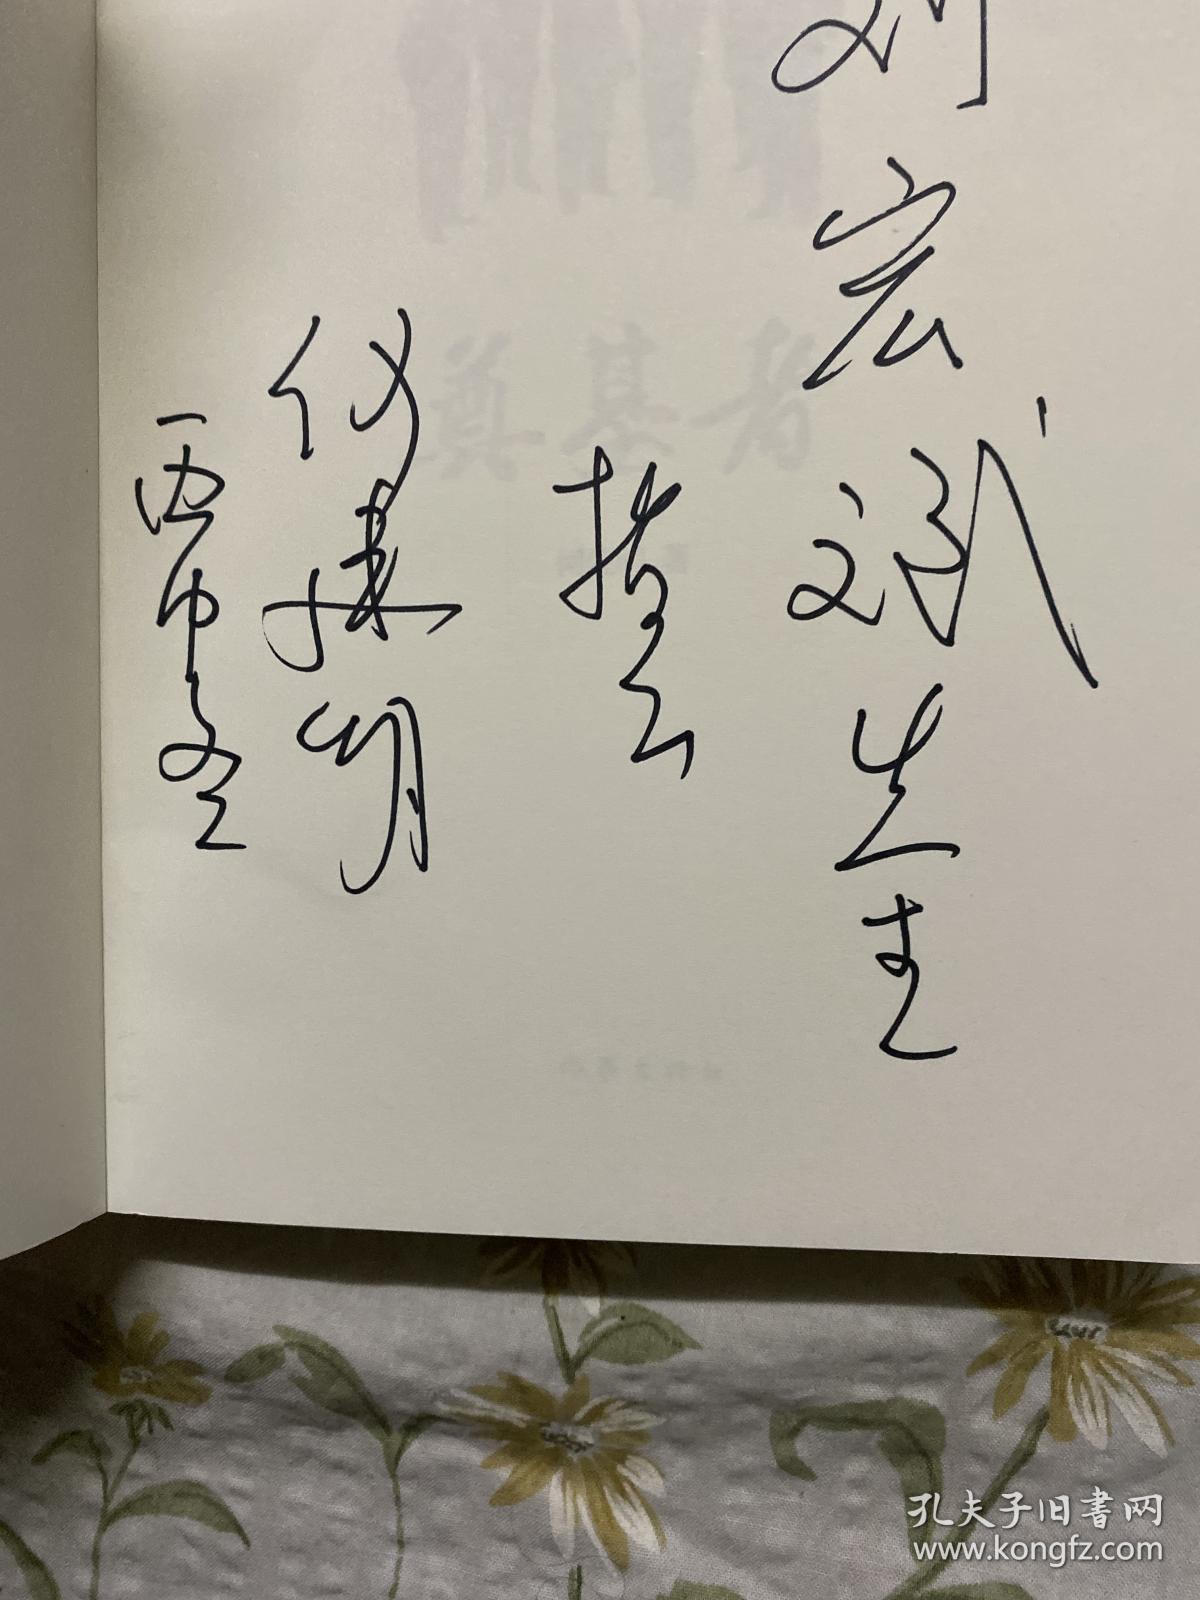 刘宏斌先生
指正
何建明
丙申冬
奠基者
孔夫子旧书网
www.kongfz.com